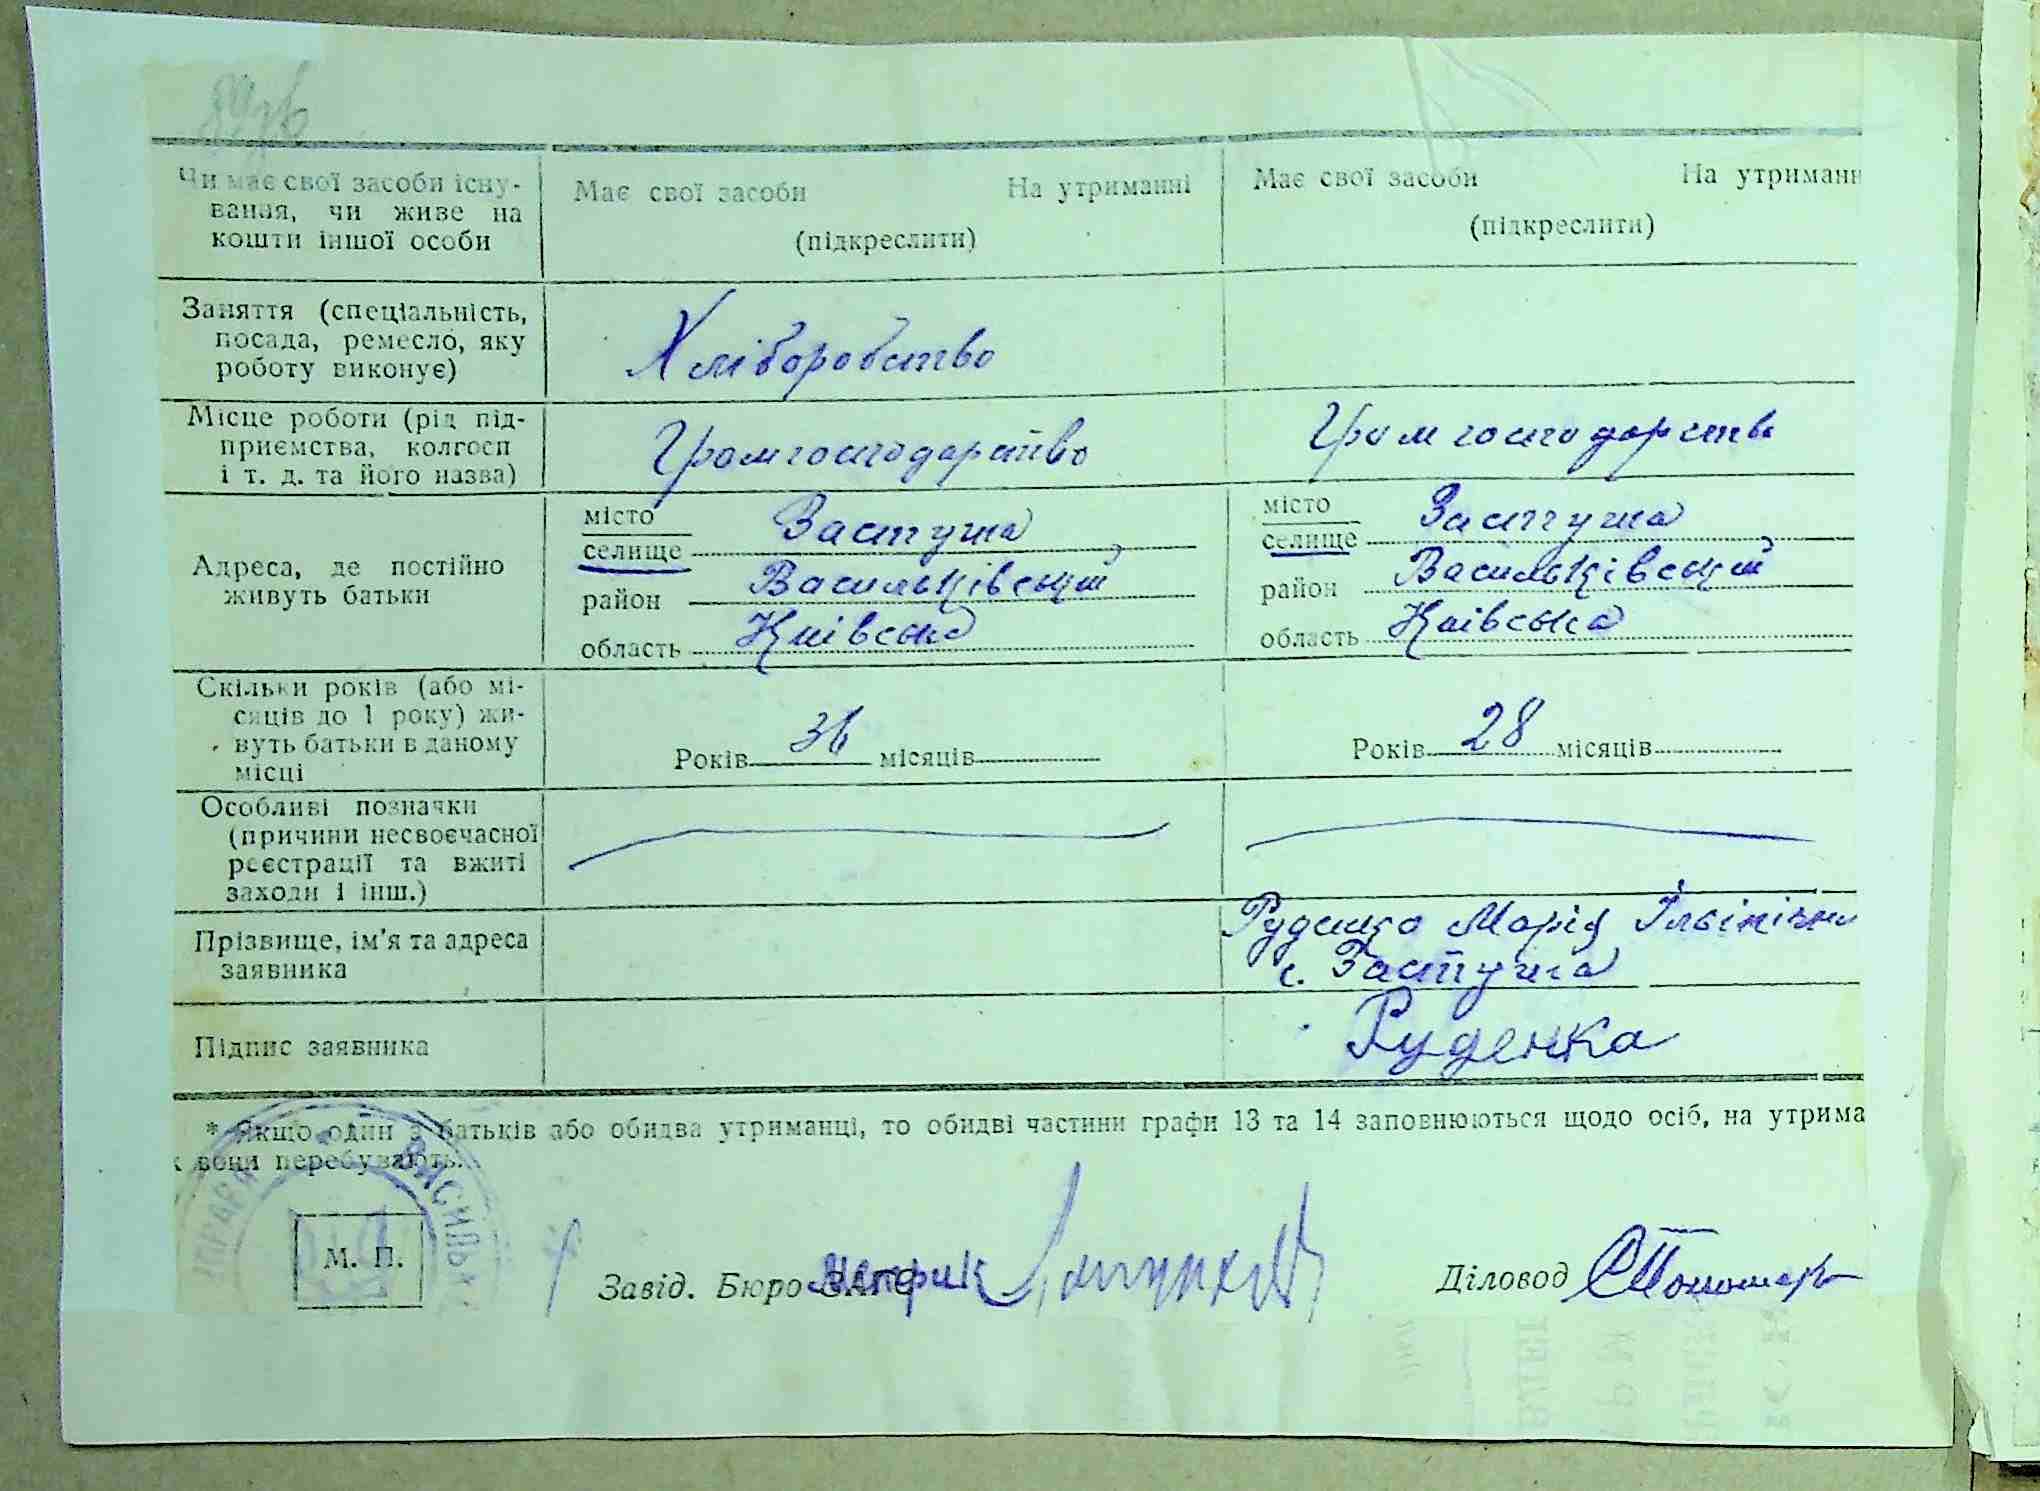 Чи має свої засоби існу-
вання, чи живе на
кошти іншої особи
Має свої засоби На утриманні
(підкреслити)
Має свої засоби На утриманн
(підкреслити)
Заняття (спеціальність,
посада, ремесло, яку
роботу виконує)
Хліборобство
Місце роботи (рід під-
приємства, колгосп
і т. д. та його назва)
Громгосподарство
Громгосподарство
Адреса, де постійно
живуть батьки
місто
селище Застугна
район Васильківський
область Київська
місто
селище Застугна
район Васильківський
область Київська
Скільки років (або мі-
сяців до 1 року) жи-
вуть батьки в даному
місці
Років 36 місяців
Років 28 місяців
Особливі позначки
(причини несвоєчасної
реєстрації та вжиті
заходи і інш.)
Прізвище, ім'я та адреса
заявника
Руденко Марія
с. Застугна
Підпис заявника
Руденка
* Якщо один з батьків або обидва утриманці, то обидві частини графи 13 та 14 заповнюються щодо осіб, на утрима
х вони перебувають.
УПРАВА ВАСИЛЬК
М. П.
Завід. Бюро ЗАГС
Діловод